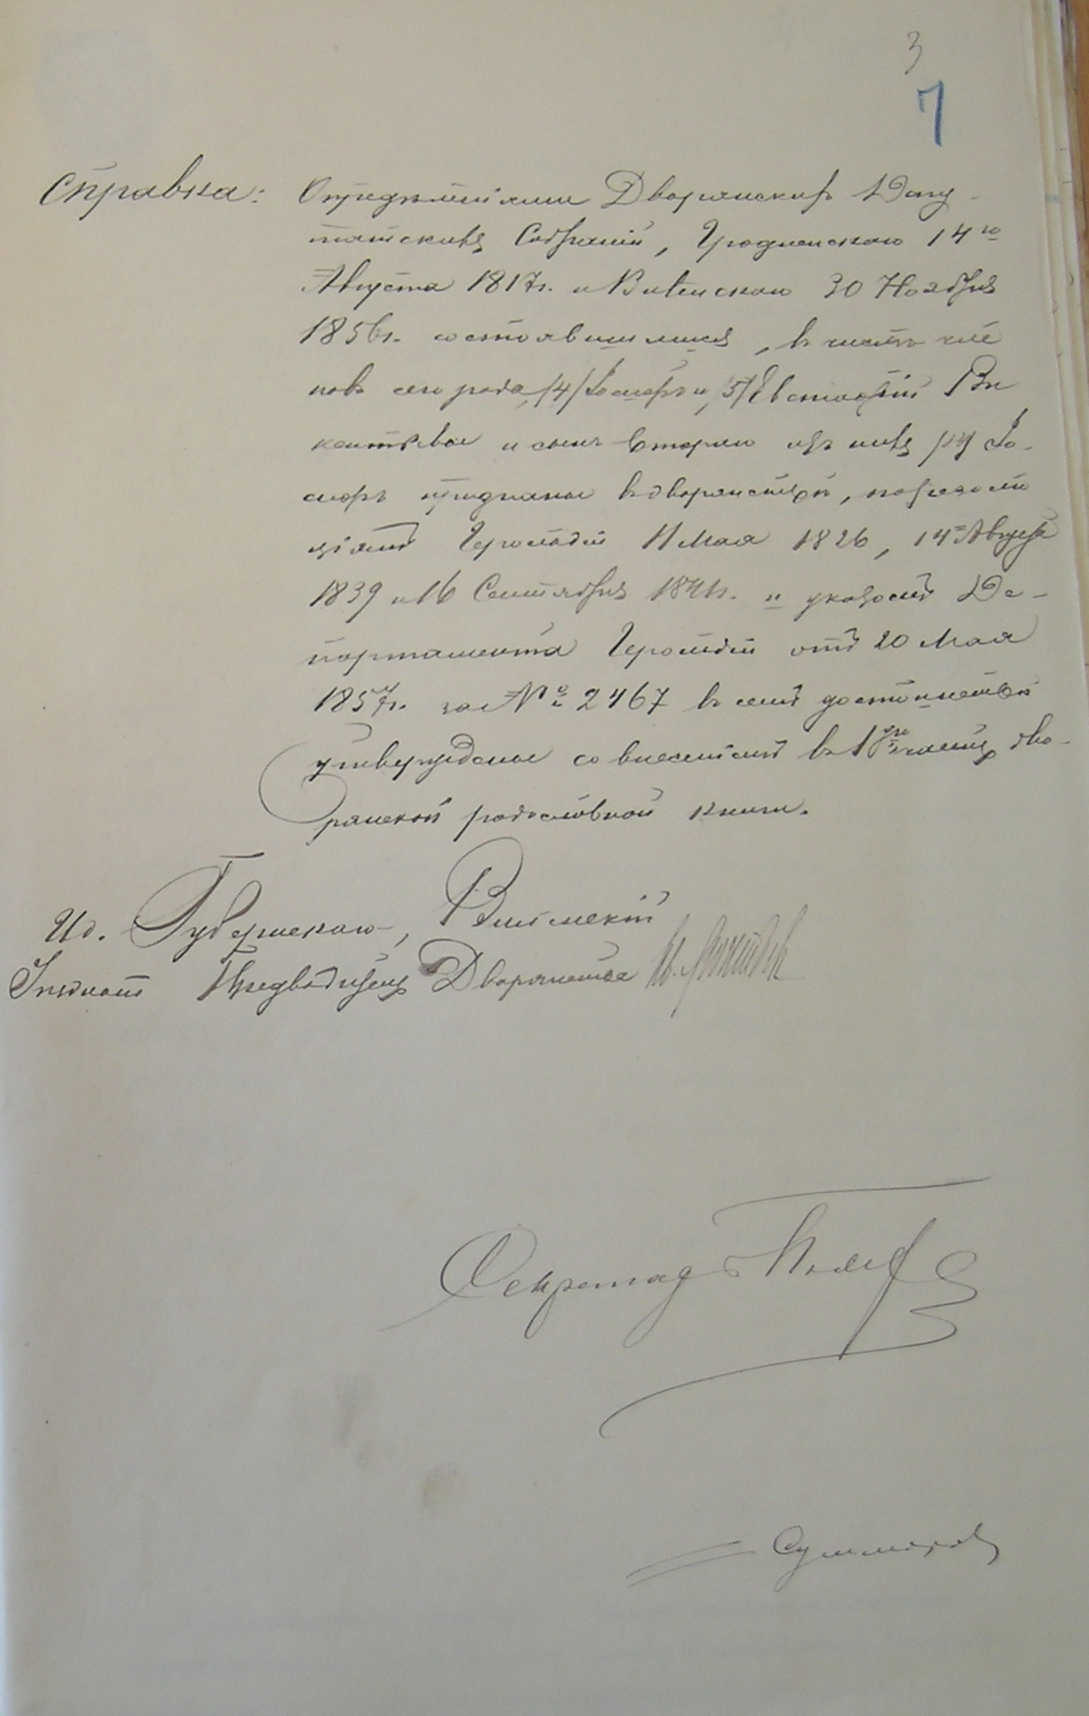 3
7
Справка: Определеніями Дворянскихъ Депу-
татскихъ Собраній, Гродненскаго 14го
Августа 1817г. и Виленскаго 30 Ноября
1856г. состоявшимися, въ числѣ чле
новъ сего рода, /4/ Іосифъ и /5/ Евстафій Ви
кентьевы и сынъ втораго изъ нихъ Іо-
сифъ признаны въ дворянствѣ, а
Герольдіи 11 Мая 1826, 14 Августа
1839 и 16 Сентября 1841г. и указомъ Де-
партамента Герольдіи отъ 20 Мая
1857г. за № 2467 въ семъ достоинствѣ
утверждены со внесеніемъ въ 1ую часть дво-
рянской родословной книги.
Ид. Губернскаго, Виленскій
Уѣздный Предводитель Дворянства
Секретарь